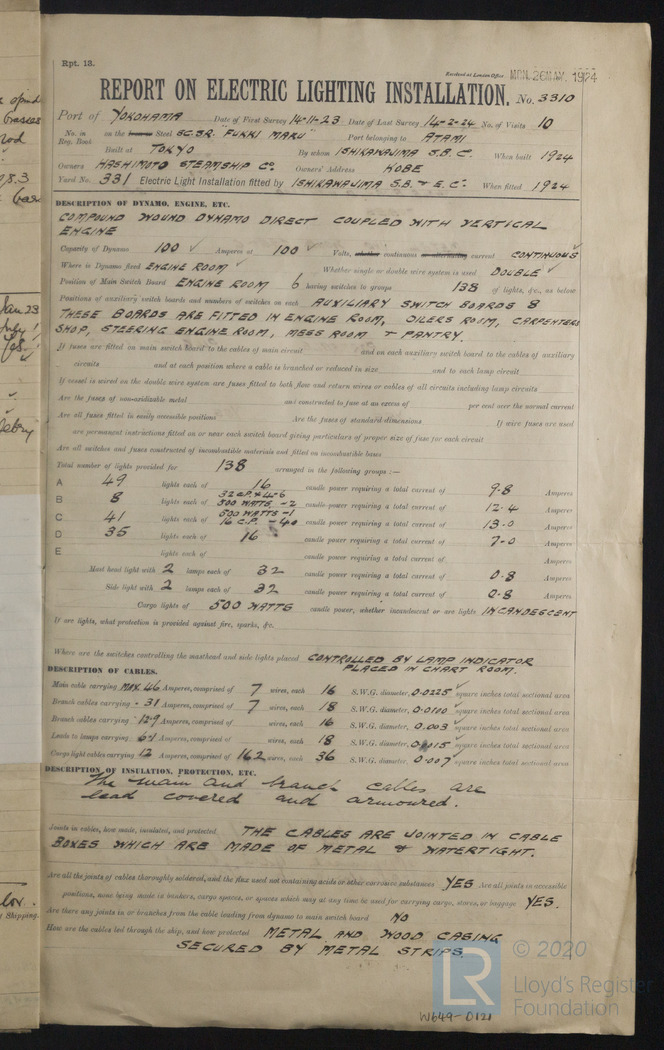 Rpt. 13.
Received at London Office MON. 26 MAY. 1924
REPORT ON ELECTRIC LIGHTING INSTALLATION. No. 3310
Port of YOKOHAMA Date of First Survey 14-11-23 Date of Last Survey 14-2-24 No. of Visits 10
No. in Reg. Book on the Steel SC. SR. FUKKI MARU" Port belonging to ATAMI
Built at TOKYO By whom ISHIKAWAJIMA S.B. C. When built 1924
Owners HASHIMOTO STEAMSHIP Co. Owners' Address KOBE
Yard No. 331 Electric Light Installation fitted by ISHIKAWAJIMA S.B. & E. C. When fitted 1924
DESCRIPTION OF DYNAMO, ENGINE, ETC.
COMPOUND WOUND DYNAMO DIRECT COUPLED WITH VERTICAL
ENGINE
Capacity of Dynamo 100 Amperes at 100 Volts, whether continuous or alternating current CONTINUOUS
Where is Dynamo fixed ENGINE ROOM Whether single or double wire system is used DOUBLE
Position of Main Switch Board ENGINE ROOM 6 having switches to groups 138 of lights, &c., as below
Positions of auxiliary switch boards and numbers of switches on each AUXILIARY SWITCH BOARDS 8
THESE BOARDS ARE FITTED IN ENGINE ROOM, OILERS ROOM, CARPENTERS
SHOP, STEERING ENGINE ROOM, MESS ROOM & PANTRY.
If fuses are fitted on main switch board to the cables of main circuit and on each auxiliary switch board to the cables of auxiliary
circuits and at each position where a cable is branched or reduced in size and to each lamp circuit
If vessel is wired on the double wire system are fuses fitted to both flow and return wires or cables of all circuits including lamp circuits
Are the fuses of non-oxidizable metal and constructed to fuse at an excess of per cent over the normal current
Are all fuses fitted in easily accessible positions Are the fuses of standard dimensions If wire fuses are used
are permanent instructions fitted on or near each switch board giving particulars of proper size of fuse for each circuit
Are all switches and fuses constructed of incombustible materials and fitted on incombustible bases
Total number of lights provided for 138 arranged in the following groups :—
A 49 lights each of 16 candle power requiring a total current of 9.8 Amperes
B 8 lights each of 32 C.P. & 4-6 500 WATTS -2 candle power requiring a total current of 12.4 Amperes
C 41 lights each of 500 WATTS -1 16 C.P. - 40 candle power requiring a total current of 13.0 Amperes
D 35 lights each of 16 candle power requiring a total current of 7.0 Amperes
E lights each of candle power requiring a total current of Amperes
Mast head light with 2 lamps each of 32 candle power requiring a total current of 0.8 Amperes
Side light with 2 lamps each of 32 candle power requiring a total current of 0.8 Amperes
Cargo lights of 500 WATTS candle power, whether incandescent or arc lights INCANDESCENT
If arc lights, what protection is provided against fire, sparks, &c.
Where are the switches controlling the masthead and side lights placed CONTROLLED BY LAMP INDICATOR
PLACED IN CHART ROOM.
DESCRIPTION OF CABLES.
Main cable carrying MAX. 46 Amperes, comprised of 7 wires, each 16 S.W.G. diameter, 0.0225 square inches total sectional area
Branch cables carrying 31 Amperes, comprised of 7 wires, each 18 S.W.G. diameter, 0.0100 square inches total sectional area
Branch cables carrying 12.9 Amperes, comprised of wires, each 16 S.W.G. diameter, 0.003 square inches total sectional area
Leads to lamps carrying Amperes, comprised of wires, each 18 S.W.G. diameter, 0.0015 square inches total sectional area
Cargo light cables carrying 12 Amperes, comprised of 162 wires, each 36 S.W.G. diameter, 0.007 square inches total sectional area
DESCRIPTION OF INSULATION, PROTECTION, ETC.
The main and branch cables are
lead covered and armoured.
Joints in cables, how made, insulated, and protected THE CABLES ARE JOINTED IN CABLE
BOXES WHICH ARE MADE OF METAL & WATERTIGHT.
Are all the joints of cables thoroughly soldered, and the flux used not containing acids or other corrosive substances YES Are all joints in accessible
positions, none being made in bunkers, cargo spaces, or spaces which may at any time be used for carrying cargo, stores, or baggage YES.
Are there any joints in or branches from the cable leading from dynamo to main switch board NO
How are the cables led through the ship, and how protected METAL AND WOOD CASING
SECURED BY METAL STRIPS
© 2020
LR Lloyd's Register
Foundation
W649-0121